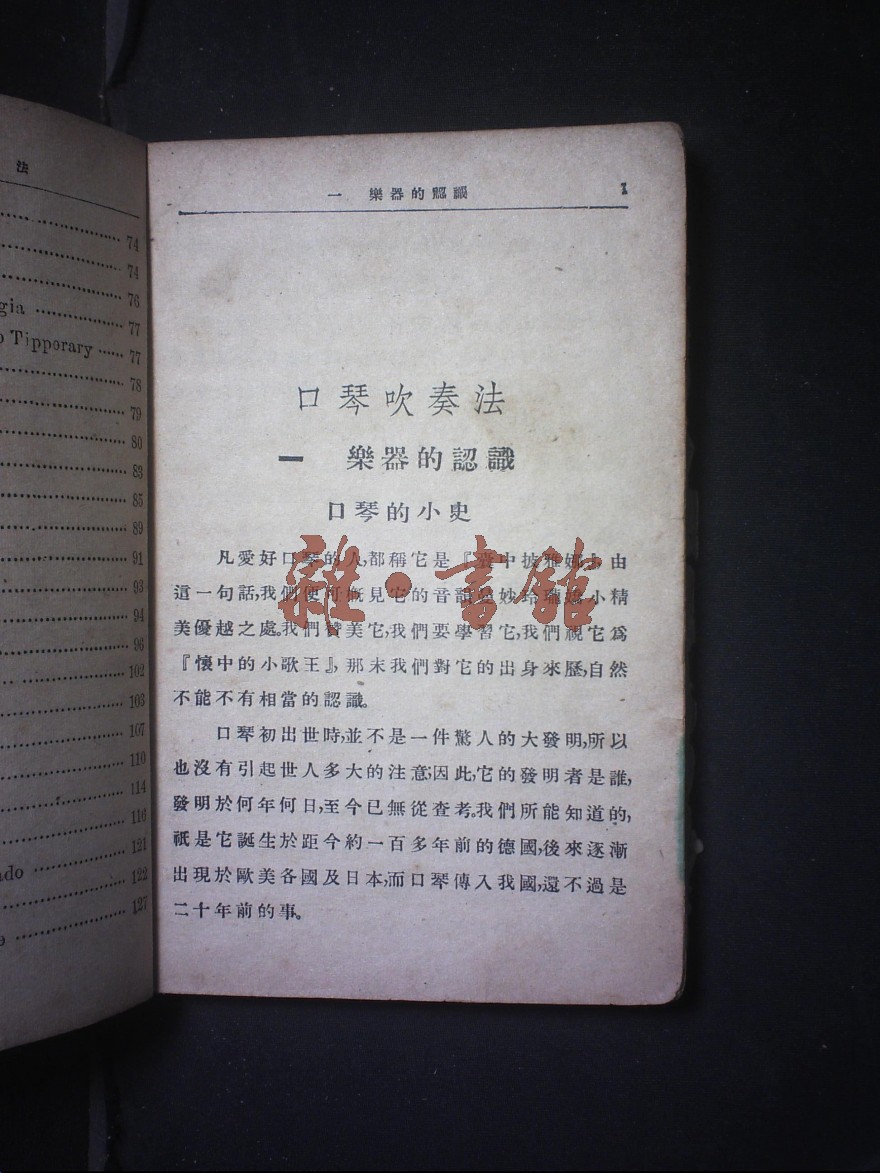 法
74
74
76
gia 77
Tipporary 77
78
79
80
83
85
89
91
93
94
96
102
103
107
110
114
116
121
ado 122
127
一 樂器的認識 1
口琴吹奏法
一 樂器的認識
口琴的小史
凡愛好口琴的人,都稱它是『囊中披雅娜』由
這一句話,我們便可概見它的音 妙玲瓏 小精
美優越之處。我們贊美它,我們要學習它,我們視它爲
『懷中的小歌王』,那末我們對它的出身來歷,自然
不能不有相當的認識。
口琴初出世時,並不是一件驚人的大發明,所以
也沒有引起世人多大的注意;因此,它的發明者是誰,
發明於何年何日,至今已無從查考。我們所能知道的,
祇是它誕生於距今約一百多年前的德國,後來逐漸
出現於歐美各國及日本,而口琴傳入我國,還不過是
二十年前的事。
雜·書館